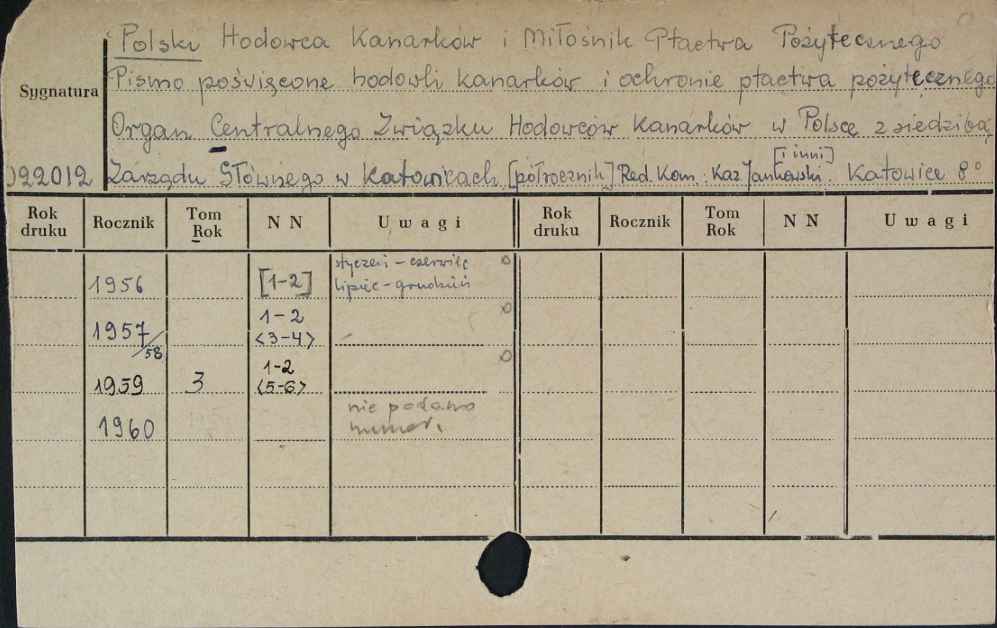 Polski Hodowca Kanarków i Miłośnik Ptactwa Pożytecznego
Sygnatura
Pismo poświęcone hodowli kanarków i ochronie ptactwa pożytecznego
Organ Centralnego Związku Hodowców Kanarków w Polsce z siedzibą
[i inni]
922012 Zarządu Głównego w Katowicach [półrocznik] Red. Kom.: Kaz Jankowski. Katowice 8°
Rok druku Rocznik Tom Rok N N Uwagi Rok druku Rocznik Tom Rok N N Uwagi
styczeń – czerwiec
1956 [1-2] lipiec – grudzień
1957/58 1-2 <3-4>
1959 3 1-2 <5-6>
1960 nie podano
numer.